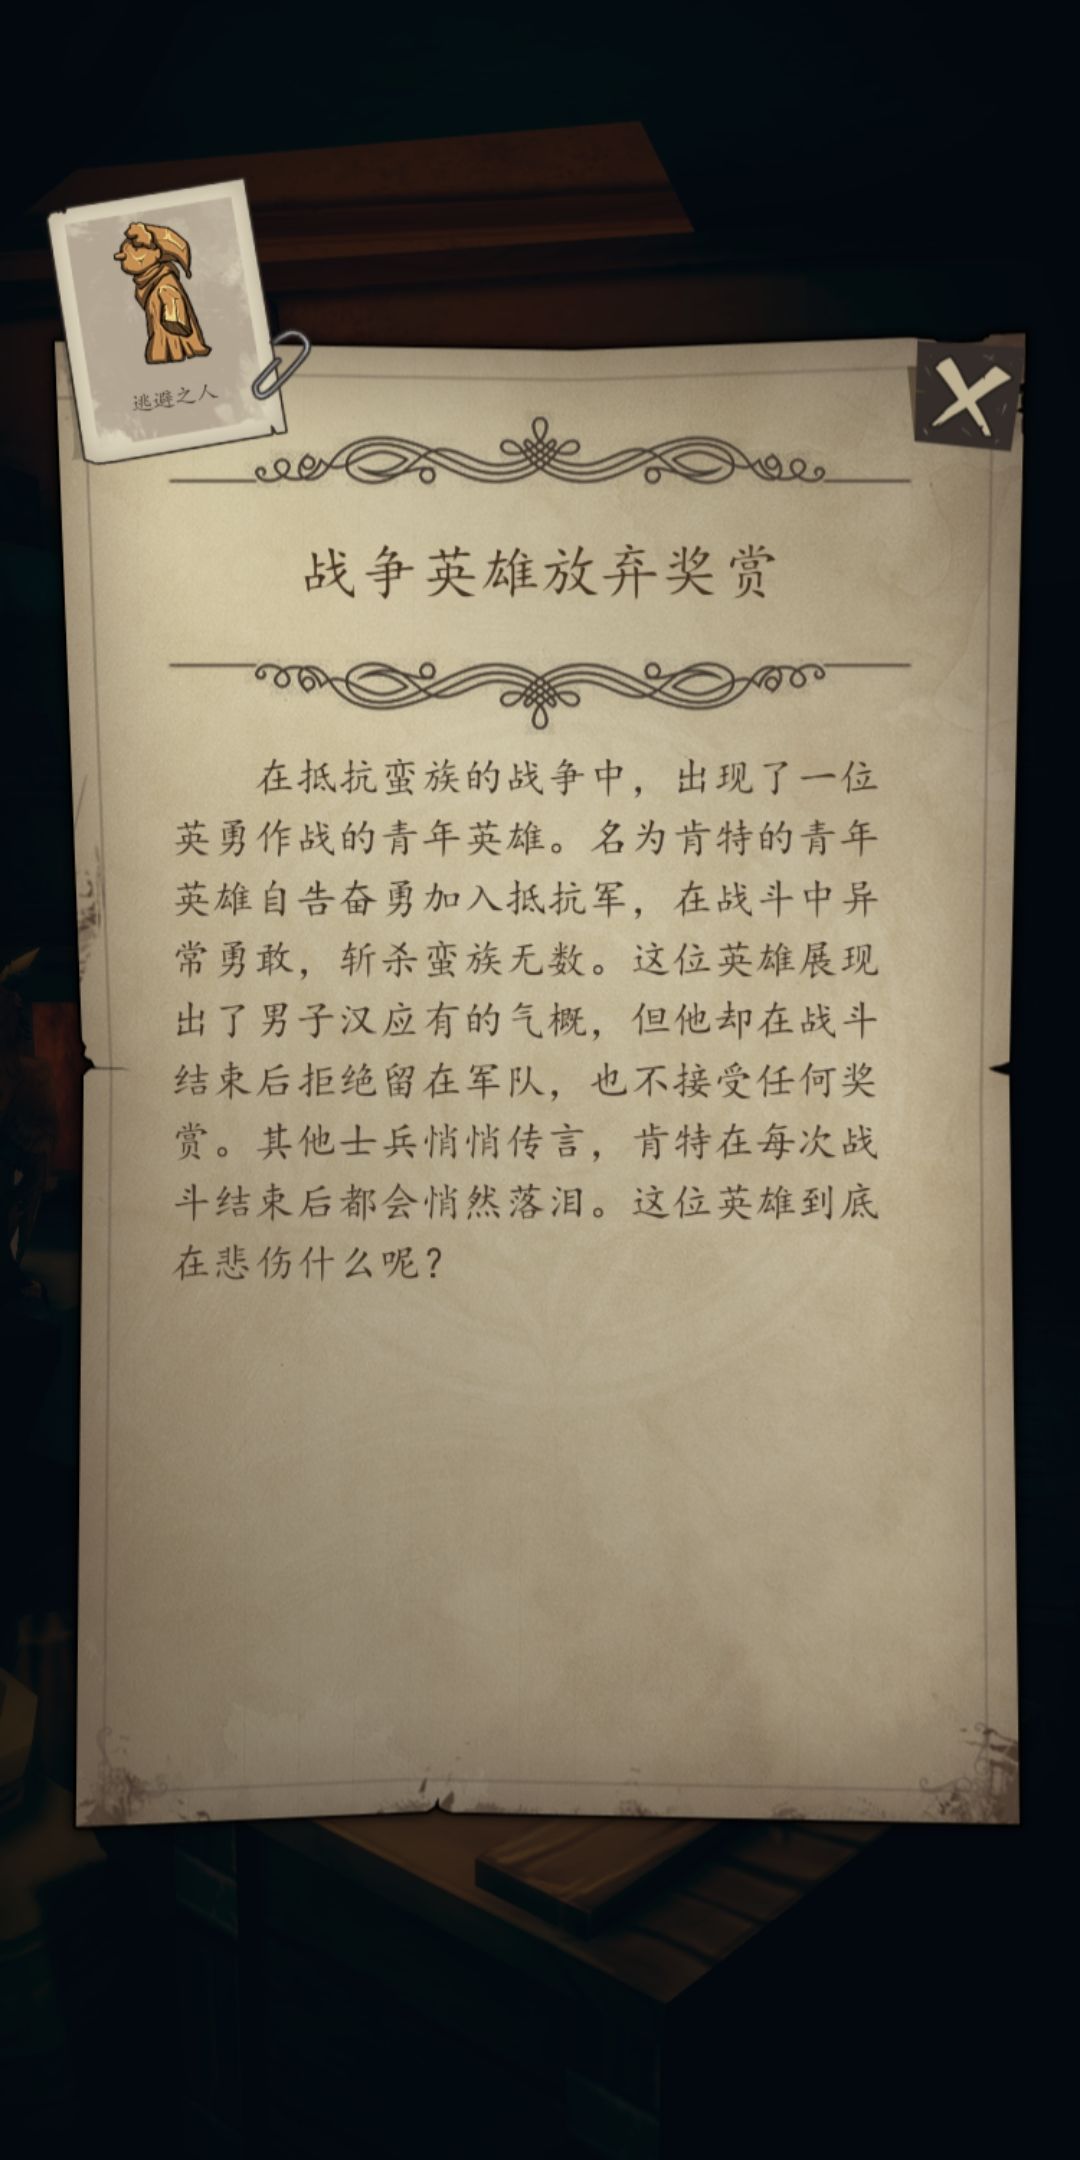 逃避之人
战争英雄放弃奖赏
在抵抗蛮族的战争中，出现了一位
英勇作战的青年英雄。名为肯特的青年
英雄自告奋勇加入抵抗军，在战斗中异
常勇敢，斩杀蛮族无数。这位英雄展现
出了男子汉应有的气概，但他却在战斗
结束后拒绝留在军队，也不接受任何奖
赏。其他士兵悄悄传言，肯特在每次战
斗结束后都会悄然落泪。这位英雄到底
在悲伤什么呢？